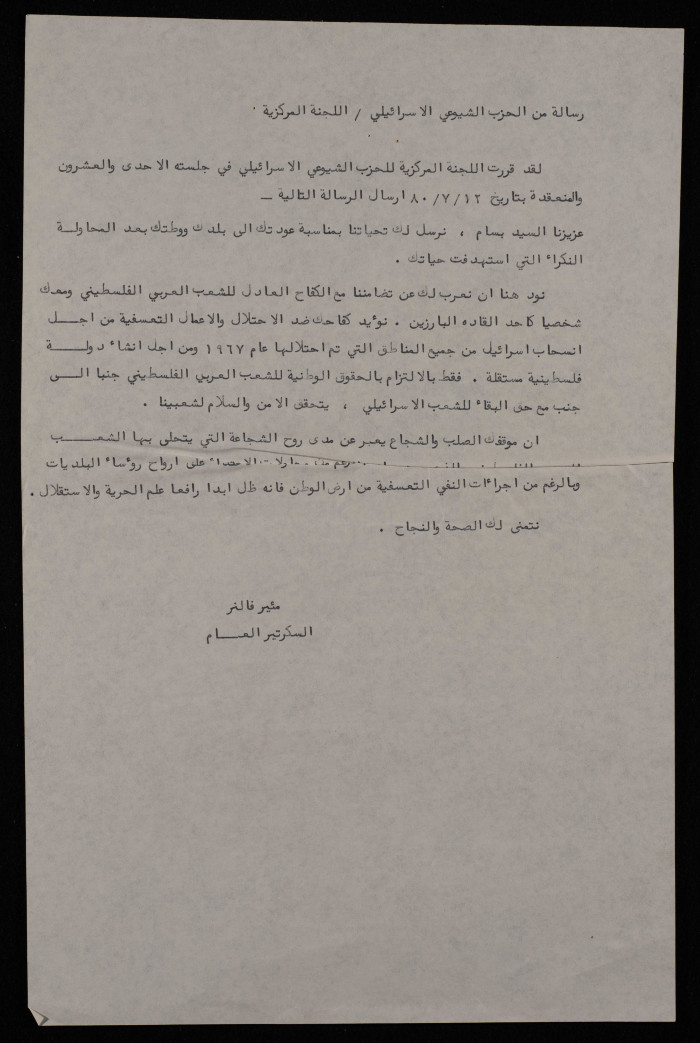 رسالة من الحزب الشيوعي الاسرائيلي / اللجنة المركزية .
لقد قررت اللجنة المركزية للحزب الشيوعي الاسرائيلي في جلسته الاحدى والعشرون
والمنعقدة بتاريخ ٨٠/٧/١٢ ارسال الرسالة التالية ــ
عزيزنا السيد بسام ، نرسل لك تحياتنا بمناسبة عودتك الى بلدك ووطنك بعد المحاولــة
النكراء التي استهدفت حياتك .
نود هنا ان نعرب لك عن تضامننا مع الكفاح العادل للشعب العربي الفلسطيني ومعك
شخصيا كاحد القاده البارزين . نؤيد كفاحك ضد الاحتلال والاعمال التعسفية من اجــل
انسحاب اسرائيل من جميع المناطق التي تم احتلالها عام ١٩٦٧ ومن اجل انشاء دولــة
فلسطينية مستقلة . فقط بالالتزام بالحقوق الوطنية للشعب العربي الفلسطيني جنبا الــى
جنب مع حق البقاء للشعب الاسرائيلي ، يتحقق الامن والسلام لشعبينا .
ان موقفك الصلب والشجاع يعبر عن مدى روح الشجاعة التي يتحلى بها الشعــب
الاعتداء على ارواح رؤساء البلديات
وبالرغم من اجراءات النفي التعسفية من ارض الوطن فانه ظل ابدا رافعا علم الحرية والاستقلال .
نتمنى لك الصحة والنجاح .
مئير فالنر
السكرتير العــام